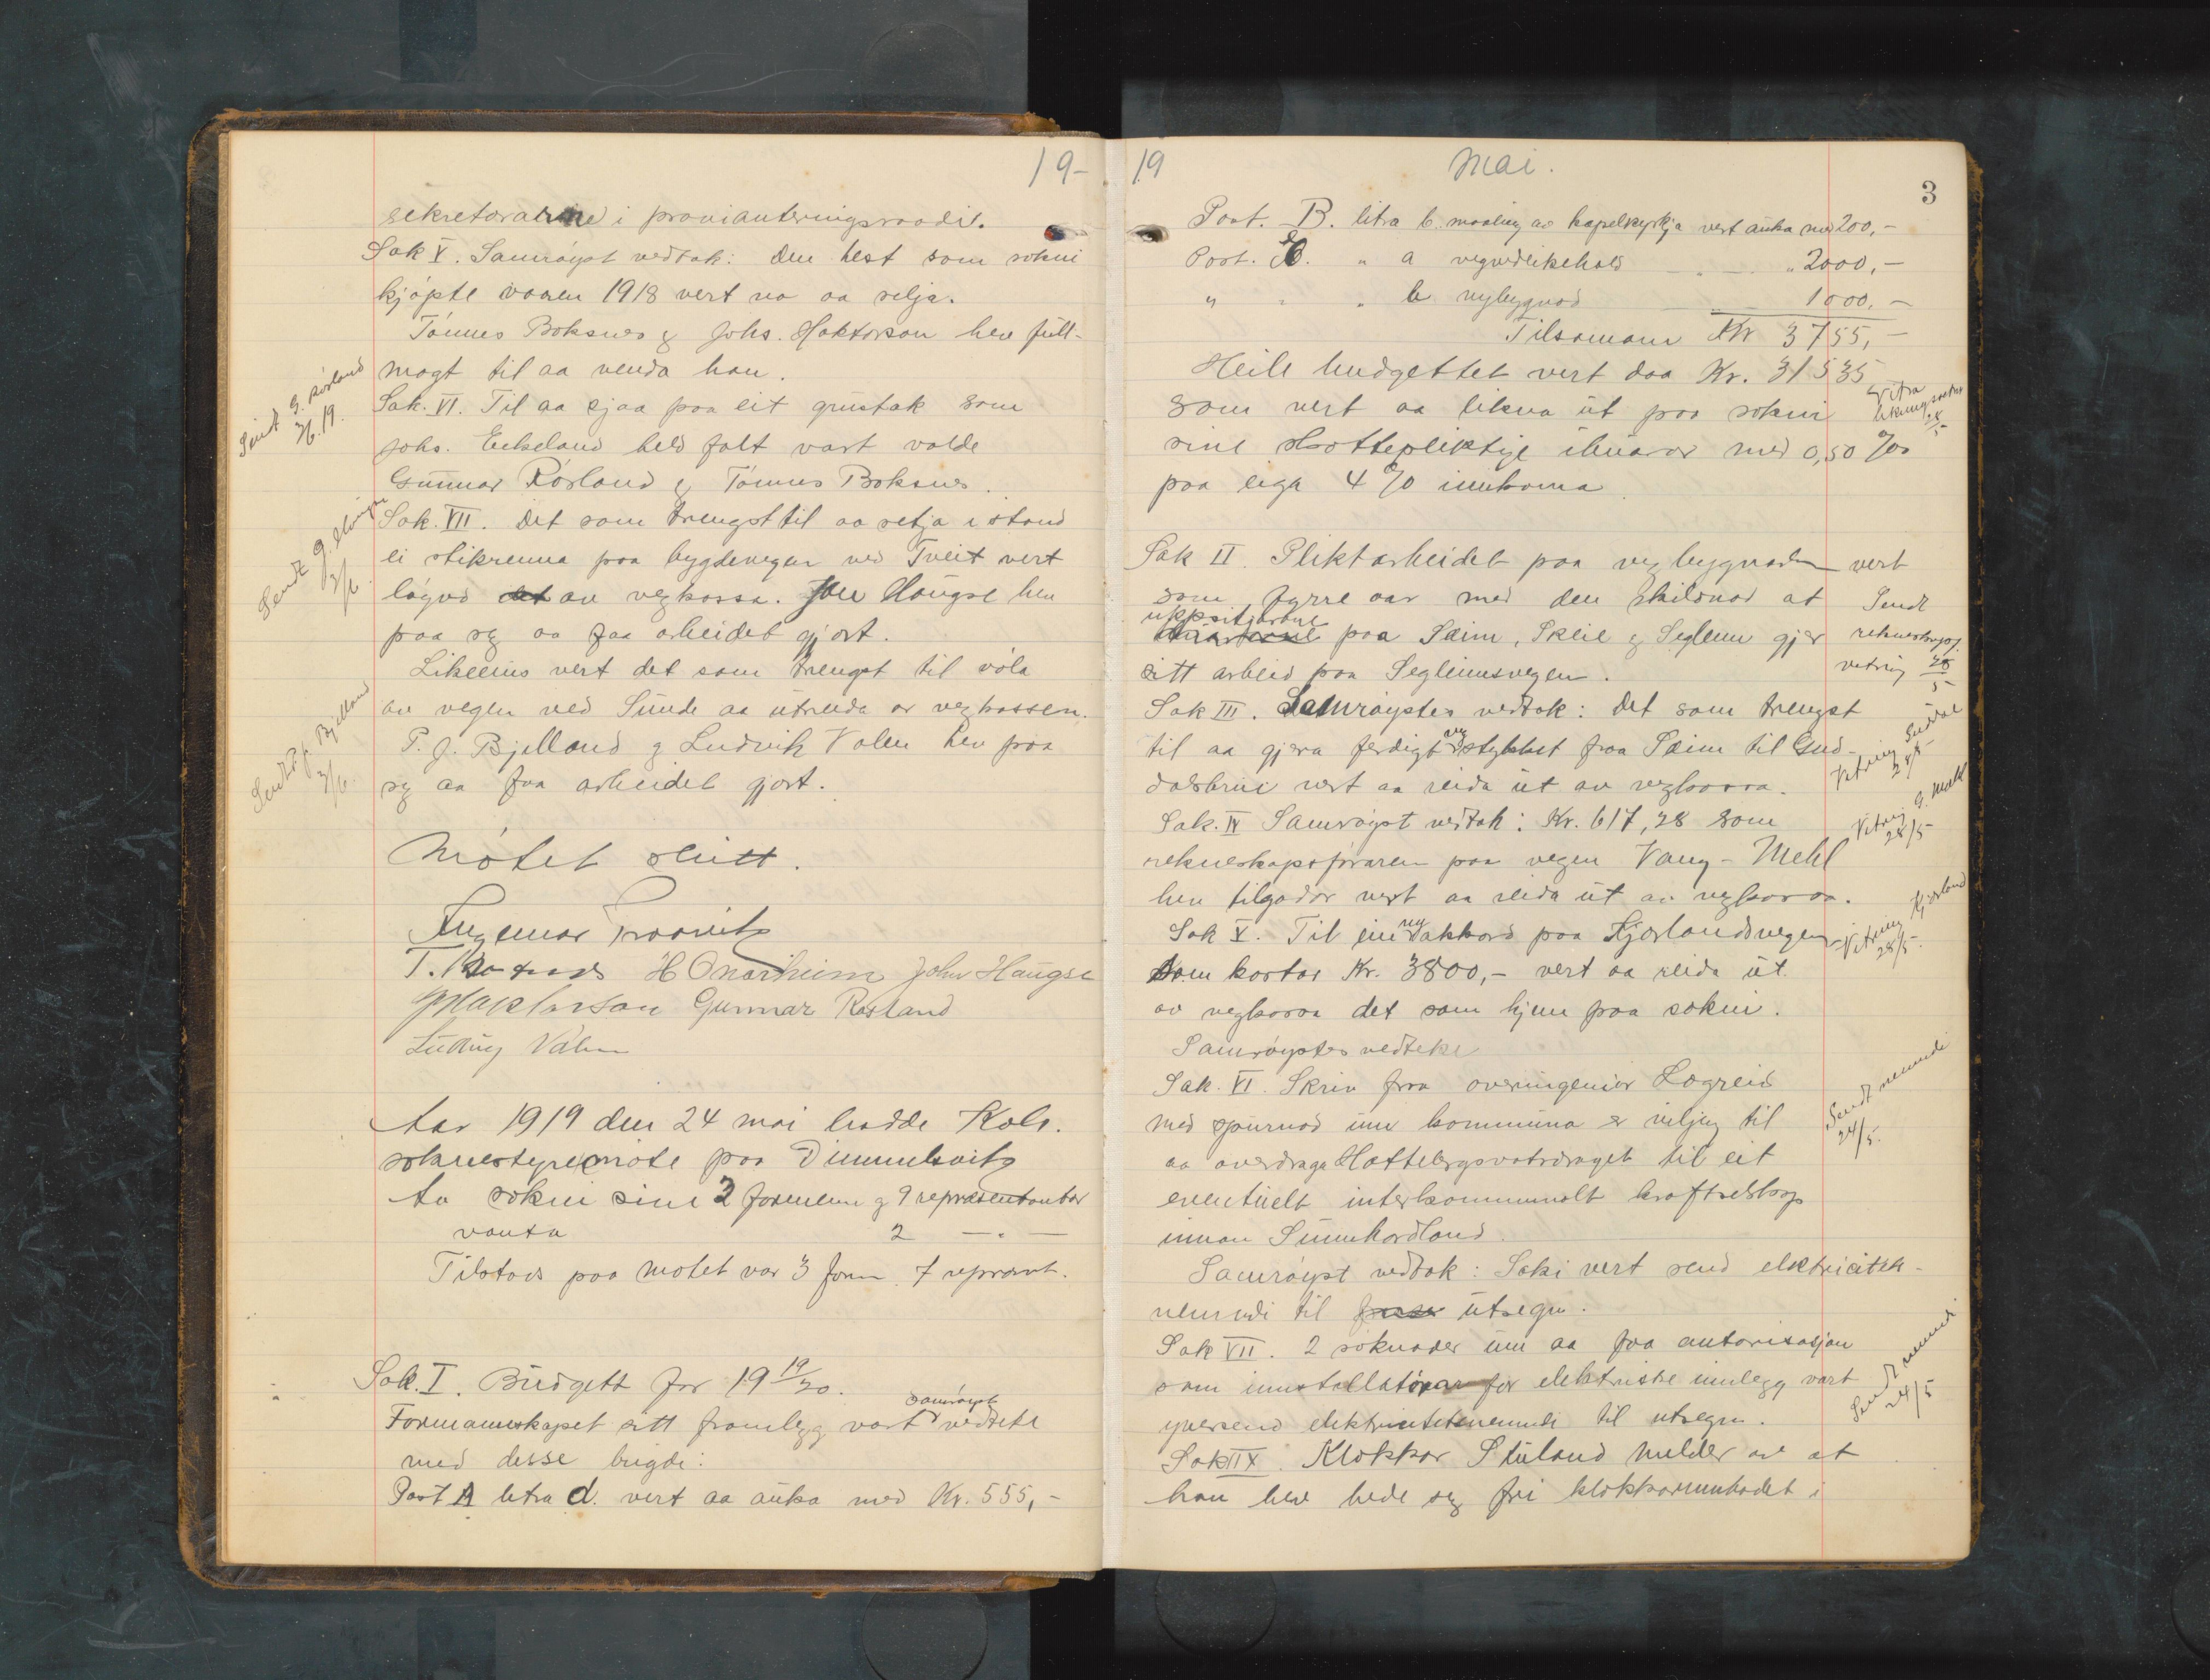 19-
sekretærarne i provianteringsraadi.
Sak V. Samrøyst vedtak: Den hest som sokni
kjøpte vaaren 1918 vert no aa selja.
Tønnes Boksnes & Johs. Haktorson hev full-
magt til aa venda han.
Sendt G. Røsland
3/6.19.
Sak. VI. Til aa sjaa paa eit grustak som
Johs. Enkeland held falt vart valde
Gunnar Røsland & Tønnes Boksnes.
Sendt J. Haugse
3/6
Sak. VII. Det som trengst til aa setja i stand
ei stikrenna paa bygdevegen ved Tveit vert
løgvd av vegkassa. Jon Haugse hev
paa seg aa faa arbeidet gjort.
Likeeins vert det som trengst til vøla
av vegen ved Sunde aa utreida av vegkassen.
Sendt P. J. Bjelland
3/6.
P. J. Bjelland & Ludvik Valen hev paa
seg aa faa arbeidet gjort.
Møtet slutt.
Ingemar
T. H Onarheim John Haugse
J Haktorson Gunnar Røsland
Ludvig Valen
Aar 1919 den 24 mai hadde Kvls.
soknestyremøte paa Dimmelsvik
Av sokni sine 3 formenn & 9 representantar
vanta 2 — " —
Tilstads paa møtet var 3 form. 7 represent.
Sak. I. Budgett for 19 19/20.
Formannskapet sitt framlegg vart samrøyst vedteke
med desse brigde:
Post A litra d. vert aa auka med Kr. 555,-
19 Mai.
3
Post. B. litra b. maaling av kapelkyrkja vert auka med 200,-
Post. C. " a vegvedlikehald " — " 2000,-
" " " b nybygnad 1000,-
Tilsamann Kr 3755,-
Heile budgettet vert daa Kr. 31535
som vert aa likna ut paa sokni
sine skottepliktige ibuarar med 0,50 ‰
paa eiga 4 % innkoma.
Sak II. Pliktarbeidet paa vegbygnaden vert
som fyrre aar med den skilnad at
uppsitjarane paa Sæim, Skeie & Seglem gjer
sitt arbeid paa Seglemsvegen.
Sendt
rekneskapsf.
vetring 28/5
Sak III. Samrøystes vedtak: Det som trengst
til aa gjera ferdigt vegstykket fraa Sæim til Gud-
dalsbrui vert aa reida ut av vegkassa.
Vetring Guddal
28/5
Sak. IV Samrøyst vedtak: Kr. 617,28 som
rekneskapsføraren paa vegen Vang - Mehl
hev tilgodar vert aa reida ut av vegkassa.
Vetring G. Mehl
28/5
Sak V. Til ein ny akkord paa Kjærlandsvegen
som kostar Kr. 3800,- vert aa reida ut
av vegkassa det som kjem paa sokni.
Samrøystes vedteke
Vetring Kjærland
28/5.
Sak. VI. Skriv fraa overingeniør Lægreid
med spurnad um kommuna er viljug til
aa overdraga Hattebergsvatsdraget til eit
eventuelt interkommunalt kraftselskap
innan Sunnhordland.
Samrøyst vedtak: Saki vert send elektricitet-
nemndi til utsegn.
Sendt nemndi
24/5.
Sak VII. 2 søknader um aa faa autorisasjon
som installatørar for elektriske innlegg vart
yversend elektricitetsnemndi til utsegn.
Sendt nemndi.
24/5
Sak IIX. Klokkar Stuland melder av at
han hev bede seg fri klokkarumbodet i